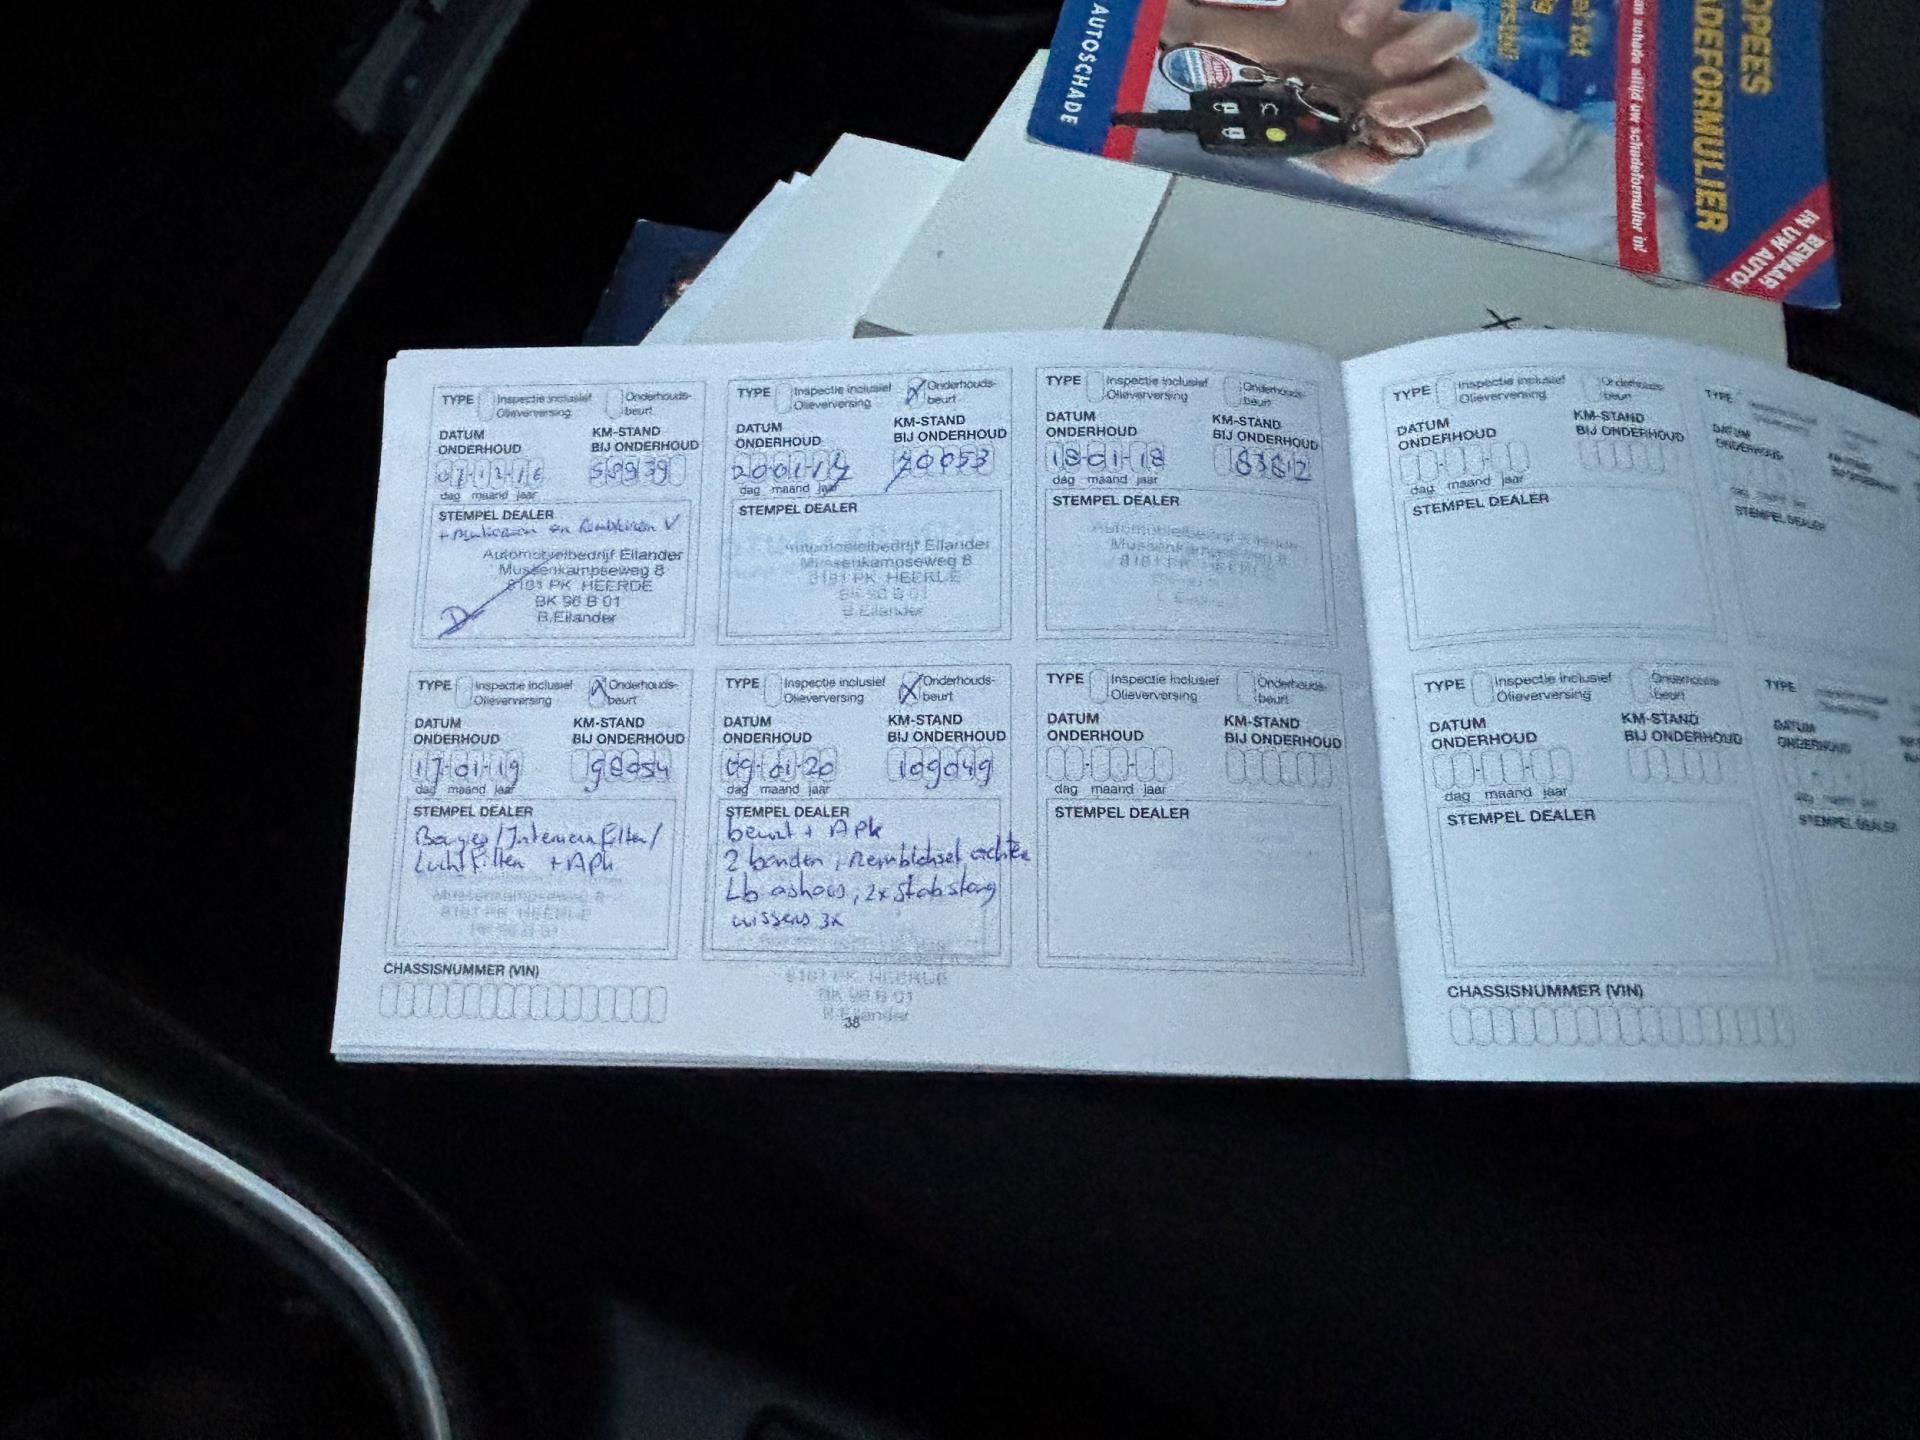 AUTOSCHADE
OPEES
ADEFORMULIER
BEWAAR
IN UW AUTO!
TYPE Inspectie inclusief Olieverversing Onderhouds-beurt
DATUM ONDERHOUD KM-STAND BIJ ONDERHOUD
dag maand jaar
STEMPEL DEALER
Automobielbedrijf Eilander
Mussenkampseweg 8
8181 PK HEERDE
BK 96 B 01
B.Eilander
TYPE Inspectie inclusief Olieverversing Onderhouds-beurt
DATUM ONDERHOUD KM-STAND BIJ ONDERHOUD
20 01 17 70053
dag maand jaar
STEMPEL DEALER
Automobielbedrijf Eilander
Mussenkampseweg 8
8181 PK HEERDE
BK 96 B 01
B.Eilander
TYPE Inspectie inclusief Olieverversing Onderhouds-beurt
DATUM ONDERHOUD KM-STAND BIJ ONDERHOUD
18 01 18
dag maand jaar
STEMPEL DEALER
Automobielbedrijf Eilander
Mussenkampseweg 8
8181 PK HEERDE
TYPE Inspectie inclusief Olieverversing Onderhouds-beurt
DATUM ONDERHOUD KM-STAND BIJ ONDERHOUD
17 01 19 98054
dag maand jaar
STEMPEL DEALER
Luchtfilter + APK
Mussenkampseweg 8
8181 PK HEERDE
BK 96 B 01
TYPE Inspectie inclusief Olieverversing Onderhouds-beurt
DATUM ONDERHOUD KM-STAND BIJ ONDERHOUD
09 01 20 109049
dag maand jaar
STEMPEL DEALER
beurt + APK
2 banden, remblokset achter
2x stabstang
wissers 3x
8181 PK HEERDE
BK 96 B 01
B.Eilander
TYPE Inspectie inclusief Olieverversing Onderhouds-beurt
DATUM ONDERHOUD KM-STAND BIJ ONDERHOUD
dag maand jaar
STEMPEL DEALER
CHASSISNUMMER (VIN)
38
TYPE Inspectie inclusief Olieverversing Onderhouds-beurt
DATUM ONDERHOUD KM-STAND BIJ ONDERHOUD
dag maand jaar
STEMPEL DEALER
TYPE
DATUM ONDERHOUD
STEMPEL DEALER
TYPE Inspectie inclusief Olieverversing Onderhouds-beurt
DATUM ONDERHOUD KM-STAND BIJ ONDERHOUD
dag maand jaar
STEMPEL DEALER
TYPE
DATUM ONDERHOUD
STEMPEL DEALER
CHASSISNUMMER (VIN)